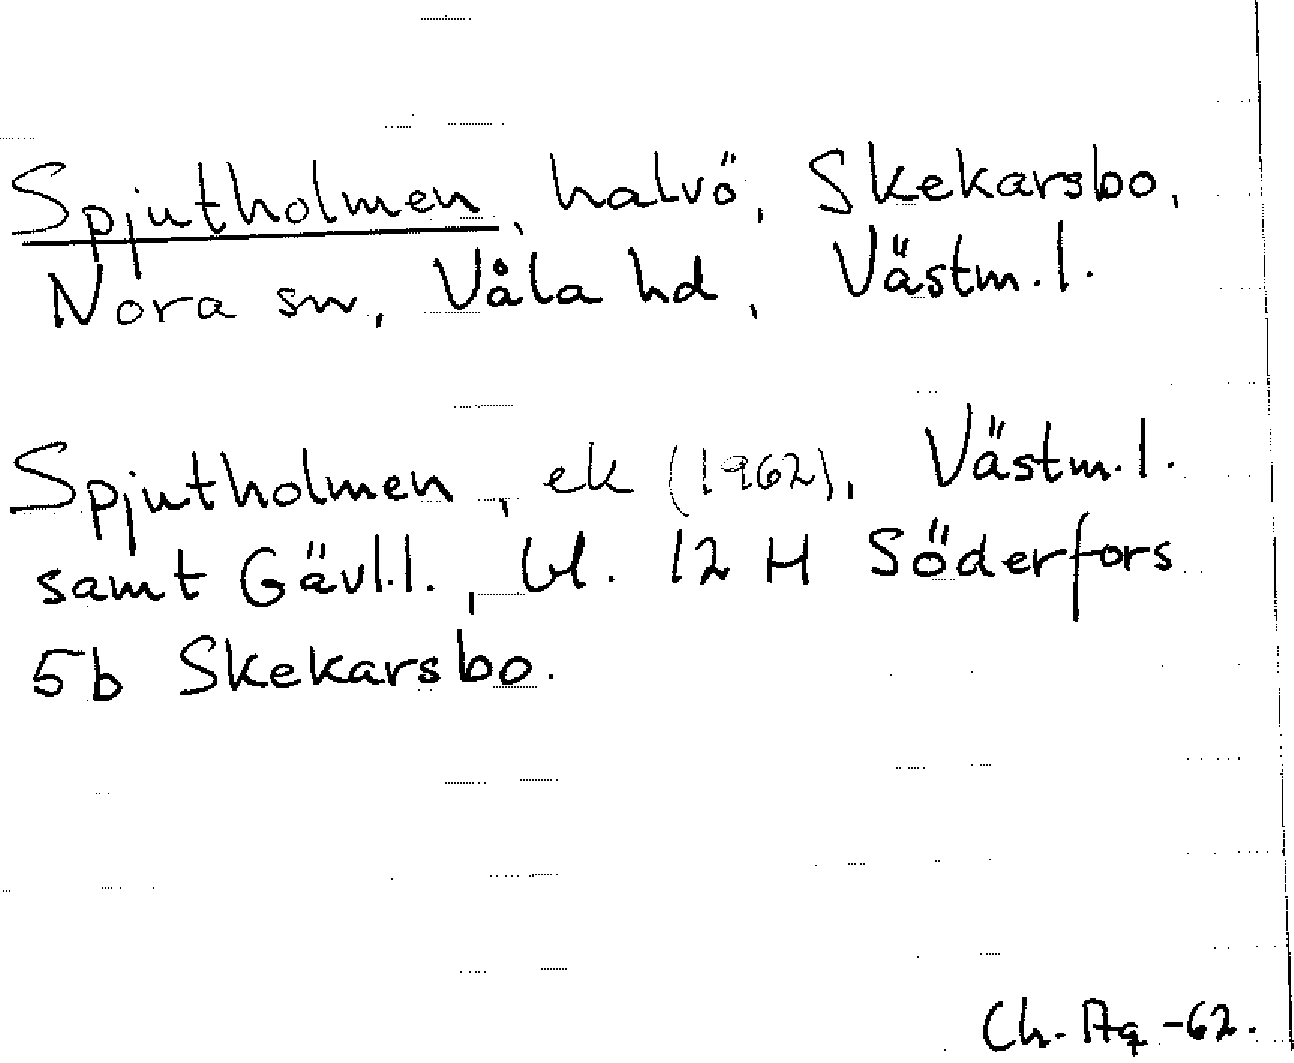 Spjutholmen, halvö, Skekarsbo,
Nora sn, Våla hd, Västm.l.
Spjutholmen, ek (1962), Västm.l.
samt Gävl.l., bl. 12 H Söderfors
5b Skekarsbo.
Ch. Aq -62.